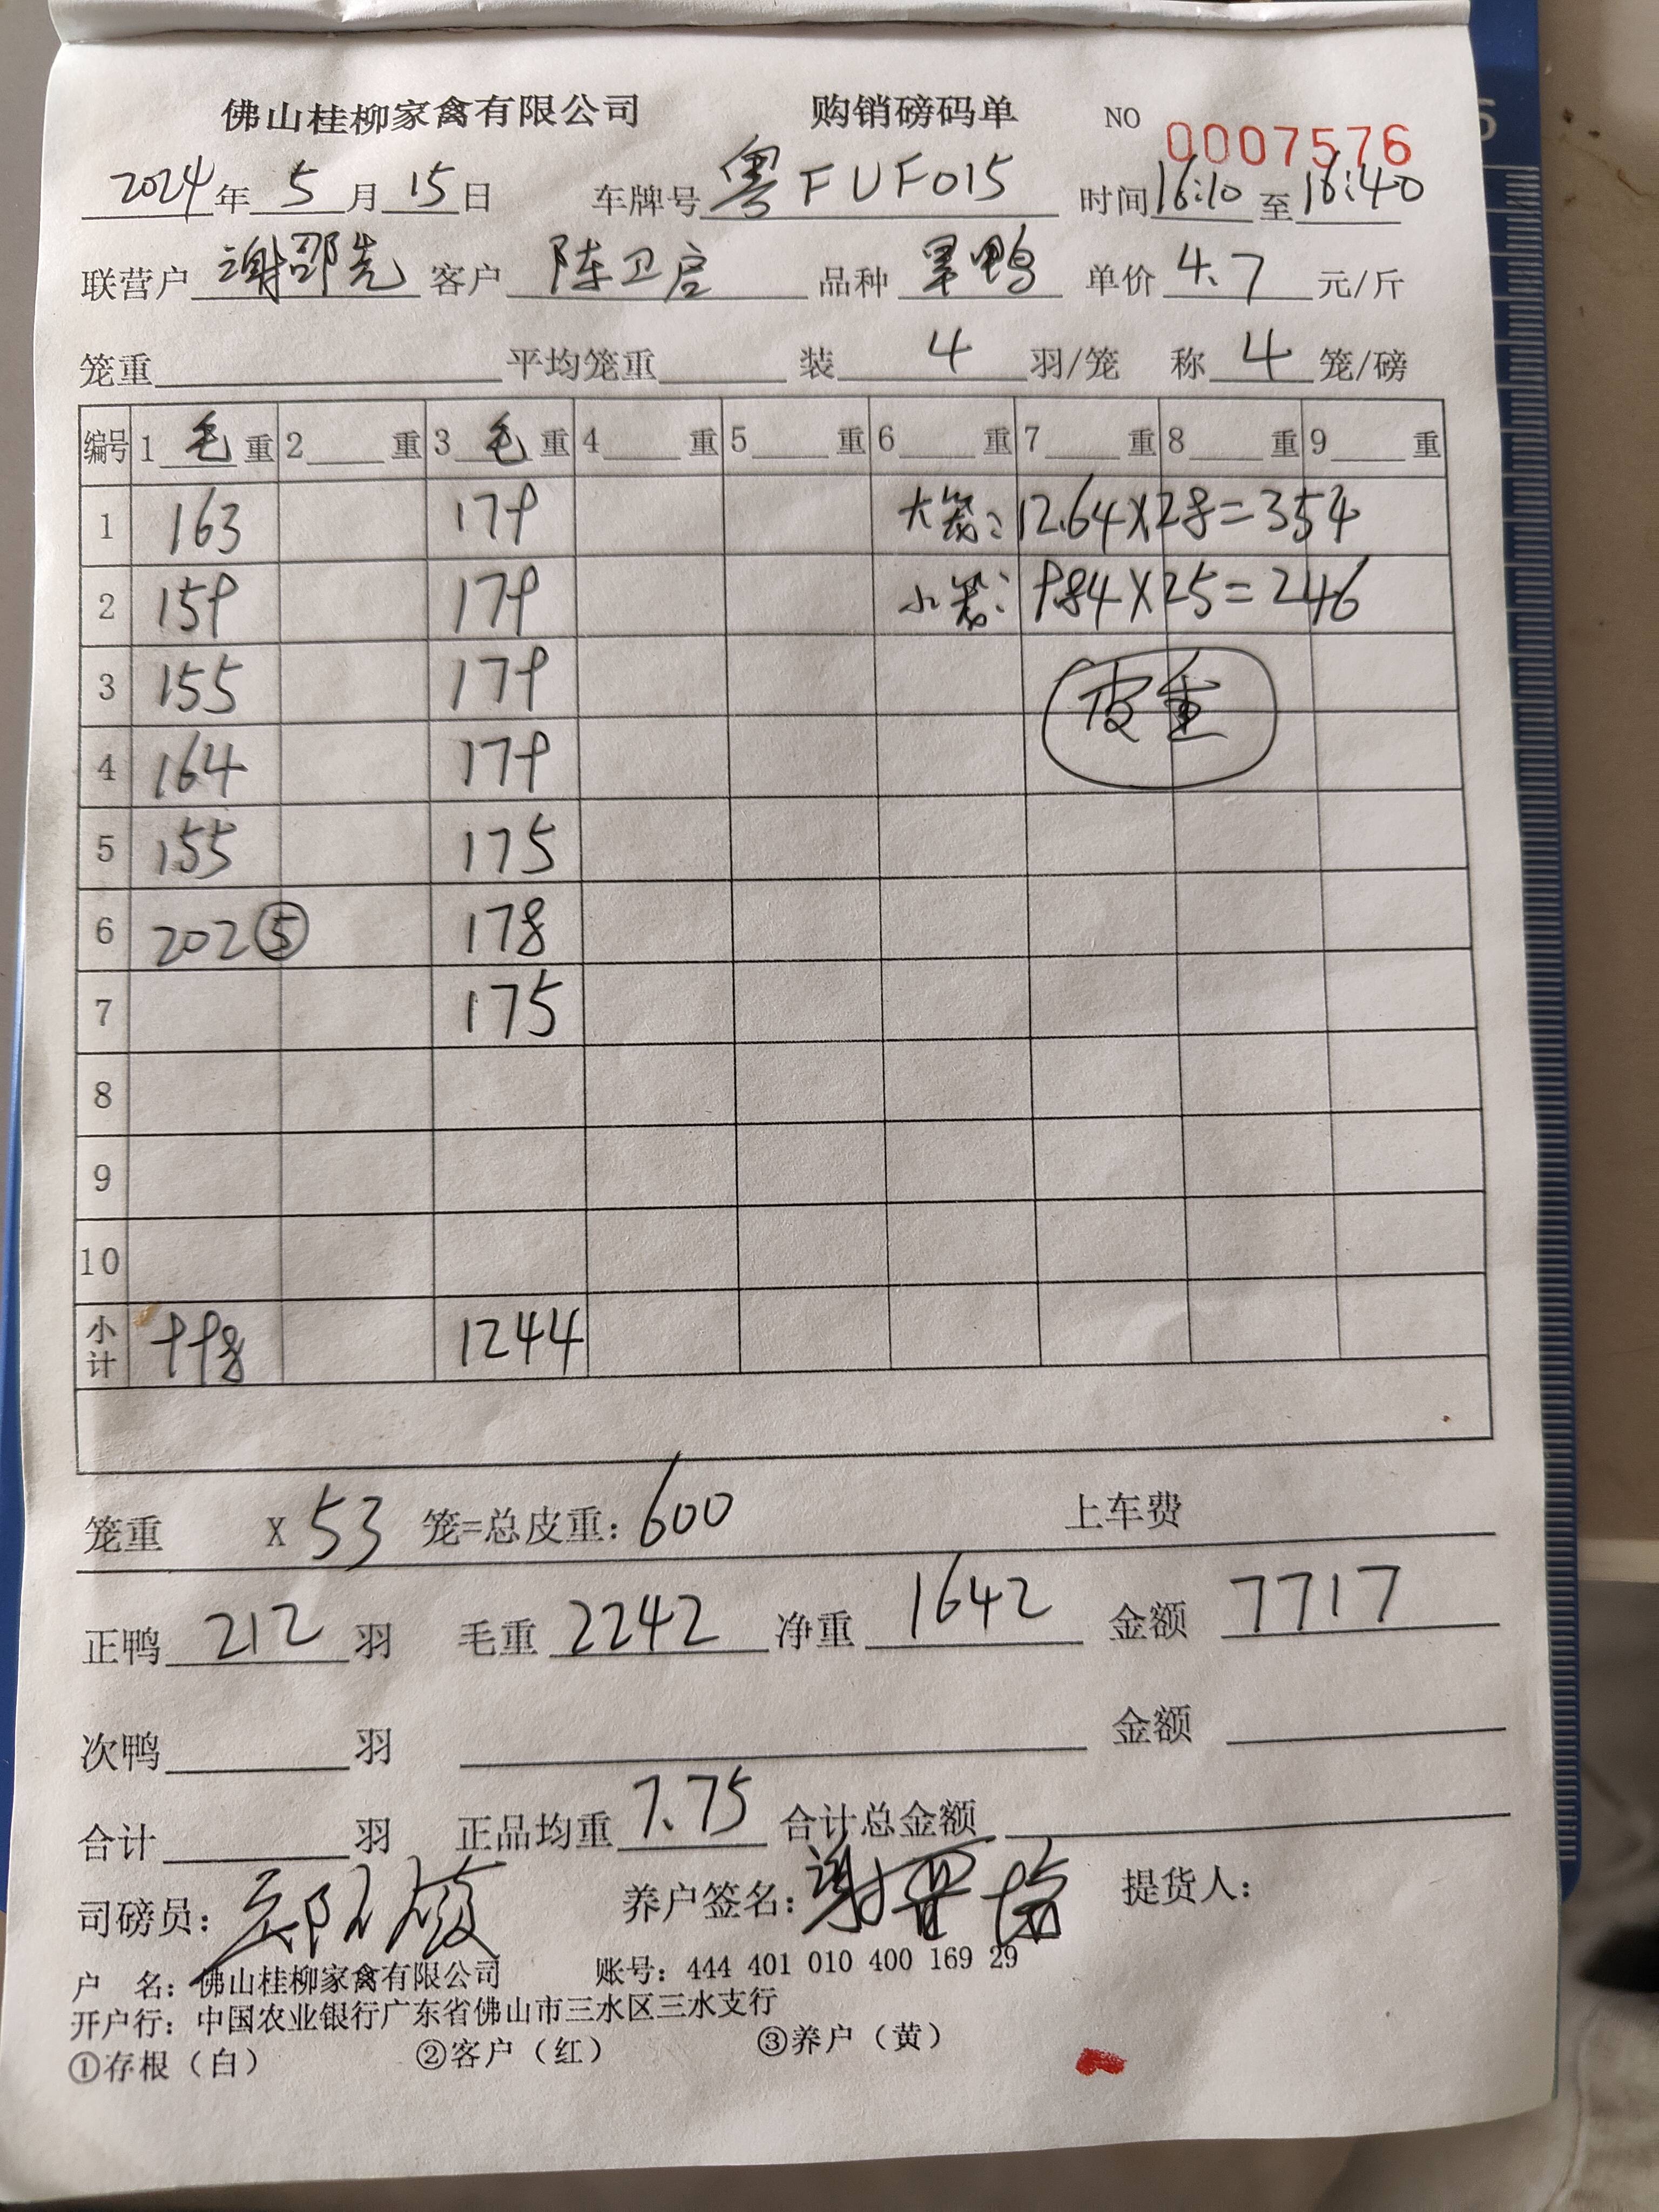 佛山桂柳家禽有限公司 购销磅码单 NO 0007576
2024年 5月 15日 车牌号 粤FUF015 时间 16:10 至 16:40
联营户 谢邵先 客户 陈卫启 品种 鸭 单价 4.7 元/斤
笼重 平均笼重 装 4 羽/笼 称 4 笼/磅
编号 1 毛 重 2 重 3 毛 重 4 重 5 重 6 重 7 重 8 重 9 重
1 163 179 大笼: 12.64X28=354
2 159 179 小笼: 9.84X25=246
3 155 179 皮重
4 164 179
5 155 175
6 202⑤ 178
7 175
8
9
10
小计 998 1244
笼重 X 53 笼=总皮重: 600 上车费
正鸭 212 羽 毛重 2242 净重 1642 金额 7717
次鸭 羽 金额
合计 羽 正品均重 7.75 合计总金额
司磅员: 养户签名: 提货人:
户 名: 佛山桂柳家禽有限公司 账号: 444 401 010 400 169 29
开户行: 中国农业银行广东省佛山市三水区三水支行
①存根（白） ②客户（红） ③养户（黄）